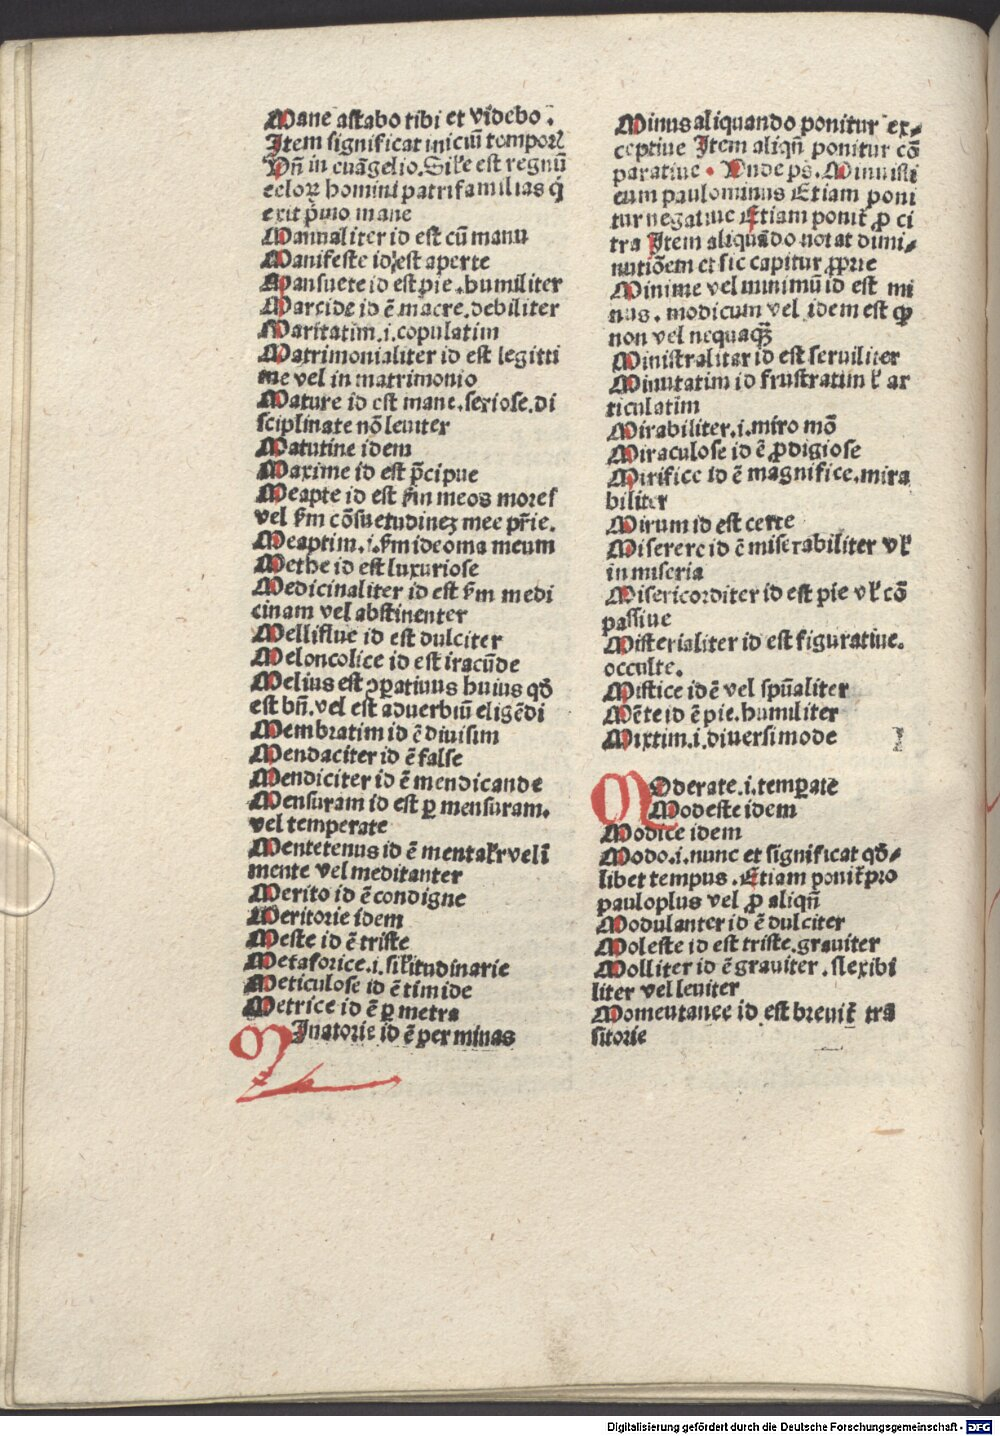 Mane astabo tibi et videbo .
Item significat iniciũ tempoꝝ
Vñ in euãgelio. Sil'e est regnũ
celoꝝ homini patrifamilias q̇
exit p̃mo mane
Manualiter id est cũ manu
Manifeste id est aperte
Mansuete id est pie. humiliter
Marcide id ẽ macre. debiliter
Maritatim .i. copulatim
Matrimonialiter id est legitti
me vel in matrimonio
Mature id est mane. seriose. di
sciplinate nõ leuiter
Matutine idem
Maxime id est p̃cipue
Meapte id est ẜm meos mores
vel ẜm cõsuetudineȝ mee pr̃ie.
Meaptim .i. ẜm ideoma meum
Methe id est luxuriose
Medicinaliter id est ẜm medi
cinam vel abstinenter
Melliflue id est dulciter
Meloncolice id est iracũde
Melius est ↄꝑatiuus huius qď
est bñ. vel est aduerbiũ eligẽdi
Membratim id ẽ diuisim
Mendaciter id ẽ false
Mendiciter id ẽ mendicande
Mensuram id est ꝑ mensuram.
vel temperate
Mentetenus id ẽ mentalr̃ vel ĩ
mente vel meditanter
Merito id ẽ condigne
Meritorie idem
Meste id ẽ triste
Metaforice .i. sil'itudinarie
Meticulose id ẽ timide
Metrice id ẽ ꝑ metra
MInatorie id ẽ per minas
Minus aliquando ponitur ex-
ceptiue Item aliqñ ponitur cõ
paratiue . Vnde ps. Minuisti
eum paulominus Etiam poni
tur negatiue Etiam ponit̃ ꝓ ci
tra Item aliquãdo notat dimi-
nutiõem et sic capitur ꝓprie
Minime vel minimũ id est mi
nus. modicum vel idem est ꝙ
non vel nequaꝙ̃
Ministraliter id est seruiliter
Minutatim id frustratim l' ar
ticulatim
Mirabiliter .i. miro mõ
Miraculose id ẽ ꝓdigiose
Mirifice id ẽ magnifice. mira
biliter
Mirum id est certe
Miserere id ẽ miserabiliter vl'
in miseria
Misericorditer id est pie vl' cõ
passiue
Misterialiter id est figuratiue.
occulte.
Mistice id ẽ vel spũaliter
Mẽte id ẽ pie. humiliter
Mixtim .i. diuersimode
MOderate .i. temꝑate
Modeste idem
Modice idem
Modo .i. nunc et significat qď-
libet tempus. Etiam ponit̃ pro
pauloplus vel ꝓ aliqñ
Modulanter id ẽ dulciter
Moleste id est triste. grauiter
Molliter id ẽ grauiter. flexibi
liter vel leniter
Momentanee id est breuit̃ trã
sitorie
Digitalisierung gefördert durch die Deutsche Forschungsgemeinschaft - DFG